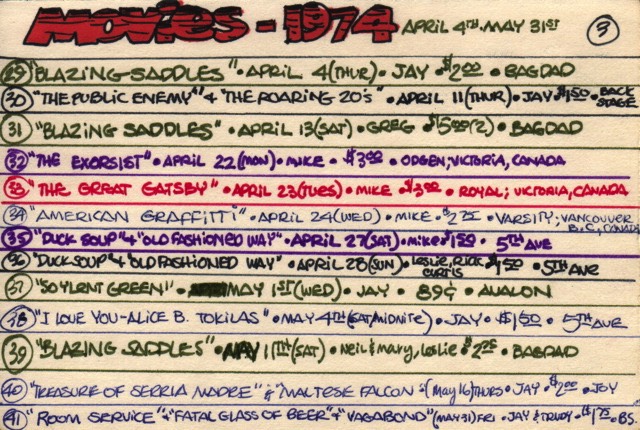 MOVIES - 1974 APRIL 4TH - MAY 31ST 3
29 "BLAZING SADDLES" • APRIL 4 (THUR) • JAY • $2.00 • BAGDAD
30 "THE PUBLIC ENEMY" & "THE ROARING 20's" • APRIL 11 (THUR) • JAY • $1.50 • BACK STAGE
31 "BLAZING SADDLES" • APRIL 13 (SAT) • GREG • $5.00 (2) • BAGDAD
32 "THE EXORSIST" • APRIL 22 (MON) • MIKE • $3.00 • ODGEN; VICTORIA, CANADA
33 "THE GREAT GATSBY" • APRIL 23 (TUES) • MIKE • $3.00 • ROYAL; VICTORIA, CANADA
34 "AMERICAN GRAFFITTI" • APRIL 24 (WED) • MIKE • $2.75 • VARSITY; VANCOUVER B.C, CANADA
35 "DUCK SOUP" & "OLD FASHIONED WAY" • APRIL 27 (SAT) • MIKE • $1.50 • 5TH AVE
36 "DUCK SOUP" & "OLD FASHIONED WAY" • APRIL 28 (SUN) • LESLIE, RICK CURTIS • $1.50 • 5TH AVE
37 "SOYLRNT GREEN" • MAY 1ST (WED) • JAY • 89¢ • AVALON
38 "I LOVE YOU - ALICE B. TOKILAS" • MAY 4TH (SAT/MIDNITE) • JAY • $1.50 • 5TH AVE
39 "BLAZING SADDLES" • MAY 11TH (SAT) • NEIL & MARY, LESLIE • $2.25 • BAGDAD
40 "TREASURE OF SERRIA MADRE" & "MALTESE FALCON" • (MAY 16) THURS • JAY • $2.00 • JOY
41 "ROOM SERVICE" & "FATAL GLASS OF BEER" & "VAGABOND" (MAY 31) FRI • JAY & TRUDY • $1.75 • B.S.